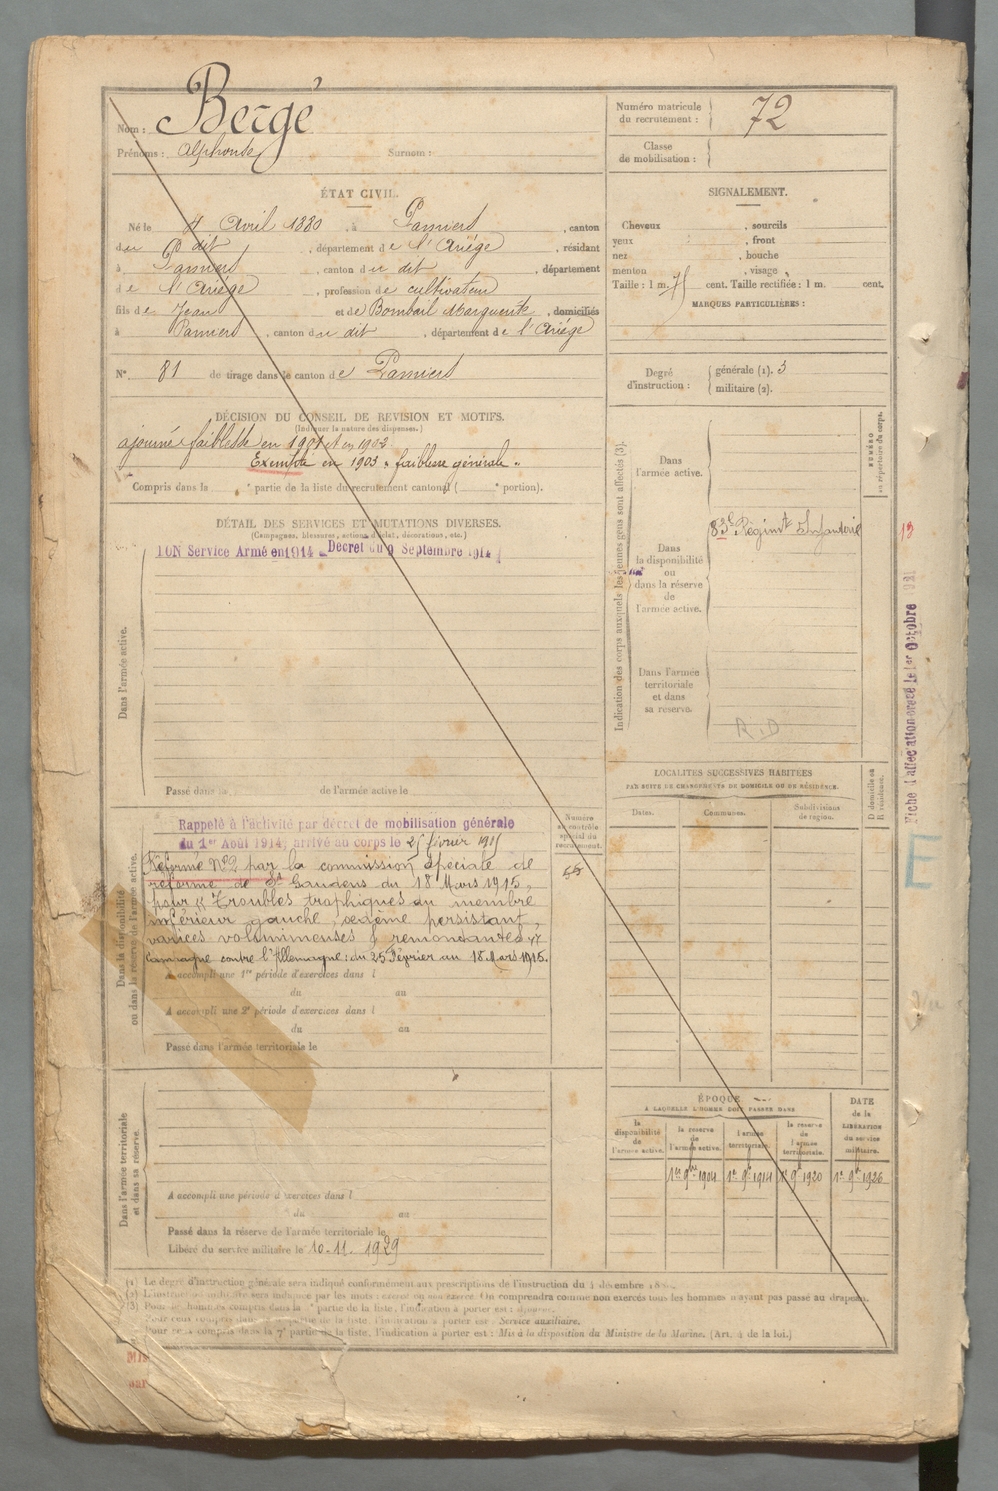 Nom : Bergé
Prénoms : Alphonse Surnom :
ÉTAT CIVIL.
Né le 4 Avril 1880, à Pamiers, canton
du dit, département de l'Ariége, résidant
à Pamiers, canton du dit, département
de l'Ariége, profession de cultivateur
fils de Jean et de Bombail Marguerite, domiciliés
à Pamiers, canton du dit, département de l'Ariége
N° 81 de tirage dans le canton de Pamiers
DÉCISION DU CONSEIL DE REVISION ET MOTIFS.
(Indiquer la nature des dispenses.)
ajourné faiblesse en 1901 et en 1902
Exempté en 1903 "faiblesse générale"
Compris dans la e partie de la liste du recrutement cantonal ( e portion).
DÉTAIL DES SERVICES ET MUTATIONS DIVERSES.
(Campagnes, blessures, actions d'éclat, décorations, etc.)
Dans l'armée active.
ION Service Armé en 1914 Décret du 9 Septembre 1914
Passé dans la de l'armée active le
Dans la disponibilité
ou dans la réserve de l'armée active.
Rappelé à l'activité par décret de mobilisation générale
du 1er Août 1914, arrivé au corps le 25 février 1915
Réformé N°2 par la commission spéciale de
réforme de St Gaudens du 18 Mars 1915,
pour "Troubles trophiques du membre
inférieur gauche, œdème persistant,
varices volumineuses & remontantes"
Campagne contre l'Allemagne : du 25 Février au 18 Mars 1915.
A accompli une 1re période d'exercices dans l
du au
A accompli une 2e période d'exercices dans l
du au
Passé dans l'armée territoriale le
Dans l'armée territoriale
et dans sa réserve.
A accompli une période d'exercices dans l
du au
Passé dans la réserve de l'armée territoriale le
Libéré du service militaire le 10.11.1929
Numéro
au contrôle
spécial du
recrutement.
Numéro matricule
du recrutement : 72
Classe
de mobilisation :
SIGNALEMENT.
Cheveux , sourcils
yeux , front
nez , bouche
menton , visage
Taille : 1 m. 75 cent. Taille rectifiée : 1 m. cent.
MARQUES PARTICULIÈRES :
Degré
d'instruction :
générale (1). 3
militaire (2).
Indication des corps auxquels les jeunes gens sont affectés (3).
NUMÉRO
au répertoire du corps.
Dans
l'armée active.
83e Régimt d'Infanterie
Dans
la disponibilité
ou
dans la réserve
de
l'armée active.
Dans l'armée
territoriale
et dans
sa réserve.
R.D
LOCALITÉS SUCCESSIVES HABITÉES
PAR SUITE DE CHANGEMENTS DE DOMICILE OU DE RÉSIDENCE.
D domicile ou
R résidence.
Dates. Communes. Subdivisions
de région.
ÉPOQUE
À LAQUELLE L'HOMME DOIT PASSER DANS
DATE
de la
LIBÉRATION
du service
militaire.
la
disponibilité
de
l'armée active.
la réserve
de
l'armée active.
l'armée
territoriale.
la réserve
de
l'armée
territoriale.
1er 9bre 1904 1er 9bre 1914 1er 9bre 1920 1er 9bre 1926
13
Fiche d'affectation créée le 1er Octobre
E
(1) Le degré d'instruction générale sera indiqué conformément aux prescriptions de l'instruction du 4 décembre
(2) L'instruction militaire sera indiquée par les mots : exercé ou non exercé. On comprendra comme non exercés tous les hommes n'ayant pas passé au drapeau.
(3) Pour les hommes compris dans la partie de la liste, l'indication à porter est :
Pour ceux compris dans la partie de la liste, l'indication à porter est : Service auxiliaire.
Pour ceux compris dans la 7e partie de la liste, l'indication à porter est : Mis à la disposition du Ministre de la Marine. (Art. 4 de la loi.)